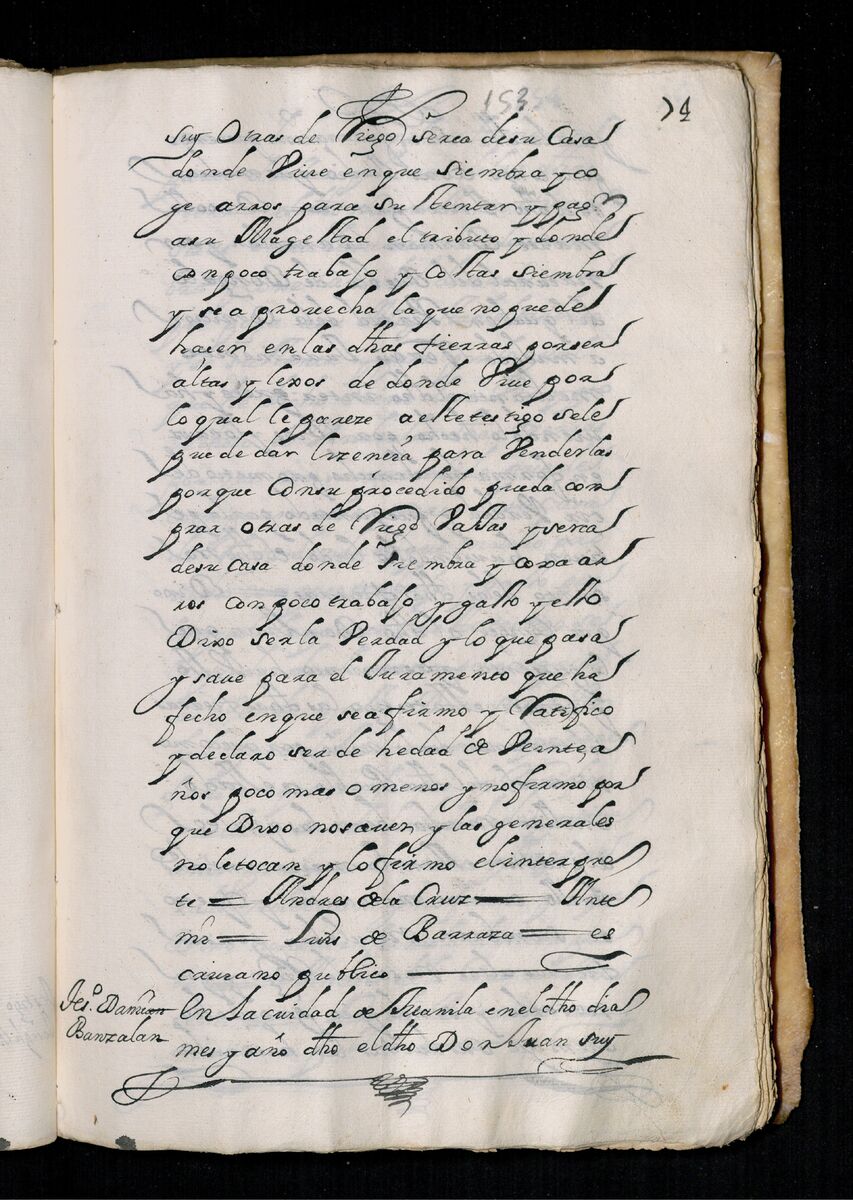 153
74
suy Otras de Riego serca desu Casa
donde Vive enque siembra y co
ge arros para sustentar y pag.r
asu Magestad el tributo y donde
con poco trabajo y costas siembra
y se a provecha la que no puede
hacer en las dhas tierras por ser
altas y lexos de donde Vive por
lo qual le pareze a este testigo sele
puede dar lizencia para Venderlas
porque Consu procedido pueda con
prar otras de Riego Vajas y serca
desu casa donde siembra y coxa ar
ros con poco trabajo y gasto y esto
Dixo ser la Verdad y lo que pasa
y save para el Juramento que ha
fecho en que se afirmo y Ratifico
y declaro ser de hedad de Veinte a
ños poco mas o menos y no firmo por
que Dixo no saver y las generales
no le tocan y lo firmo el interpre
te = Andres de la Cruz = Ante
mi = Luis de Barraza = es
crivano publico
Tes.o Damian
Banzalan
En la ciudad de Manila en el dho dia
mes y año dho el dho Don Juan suy